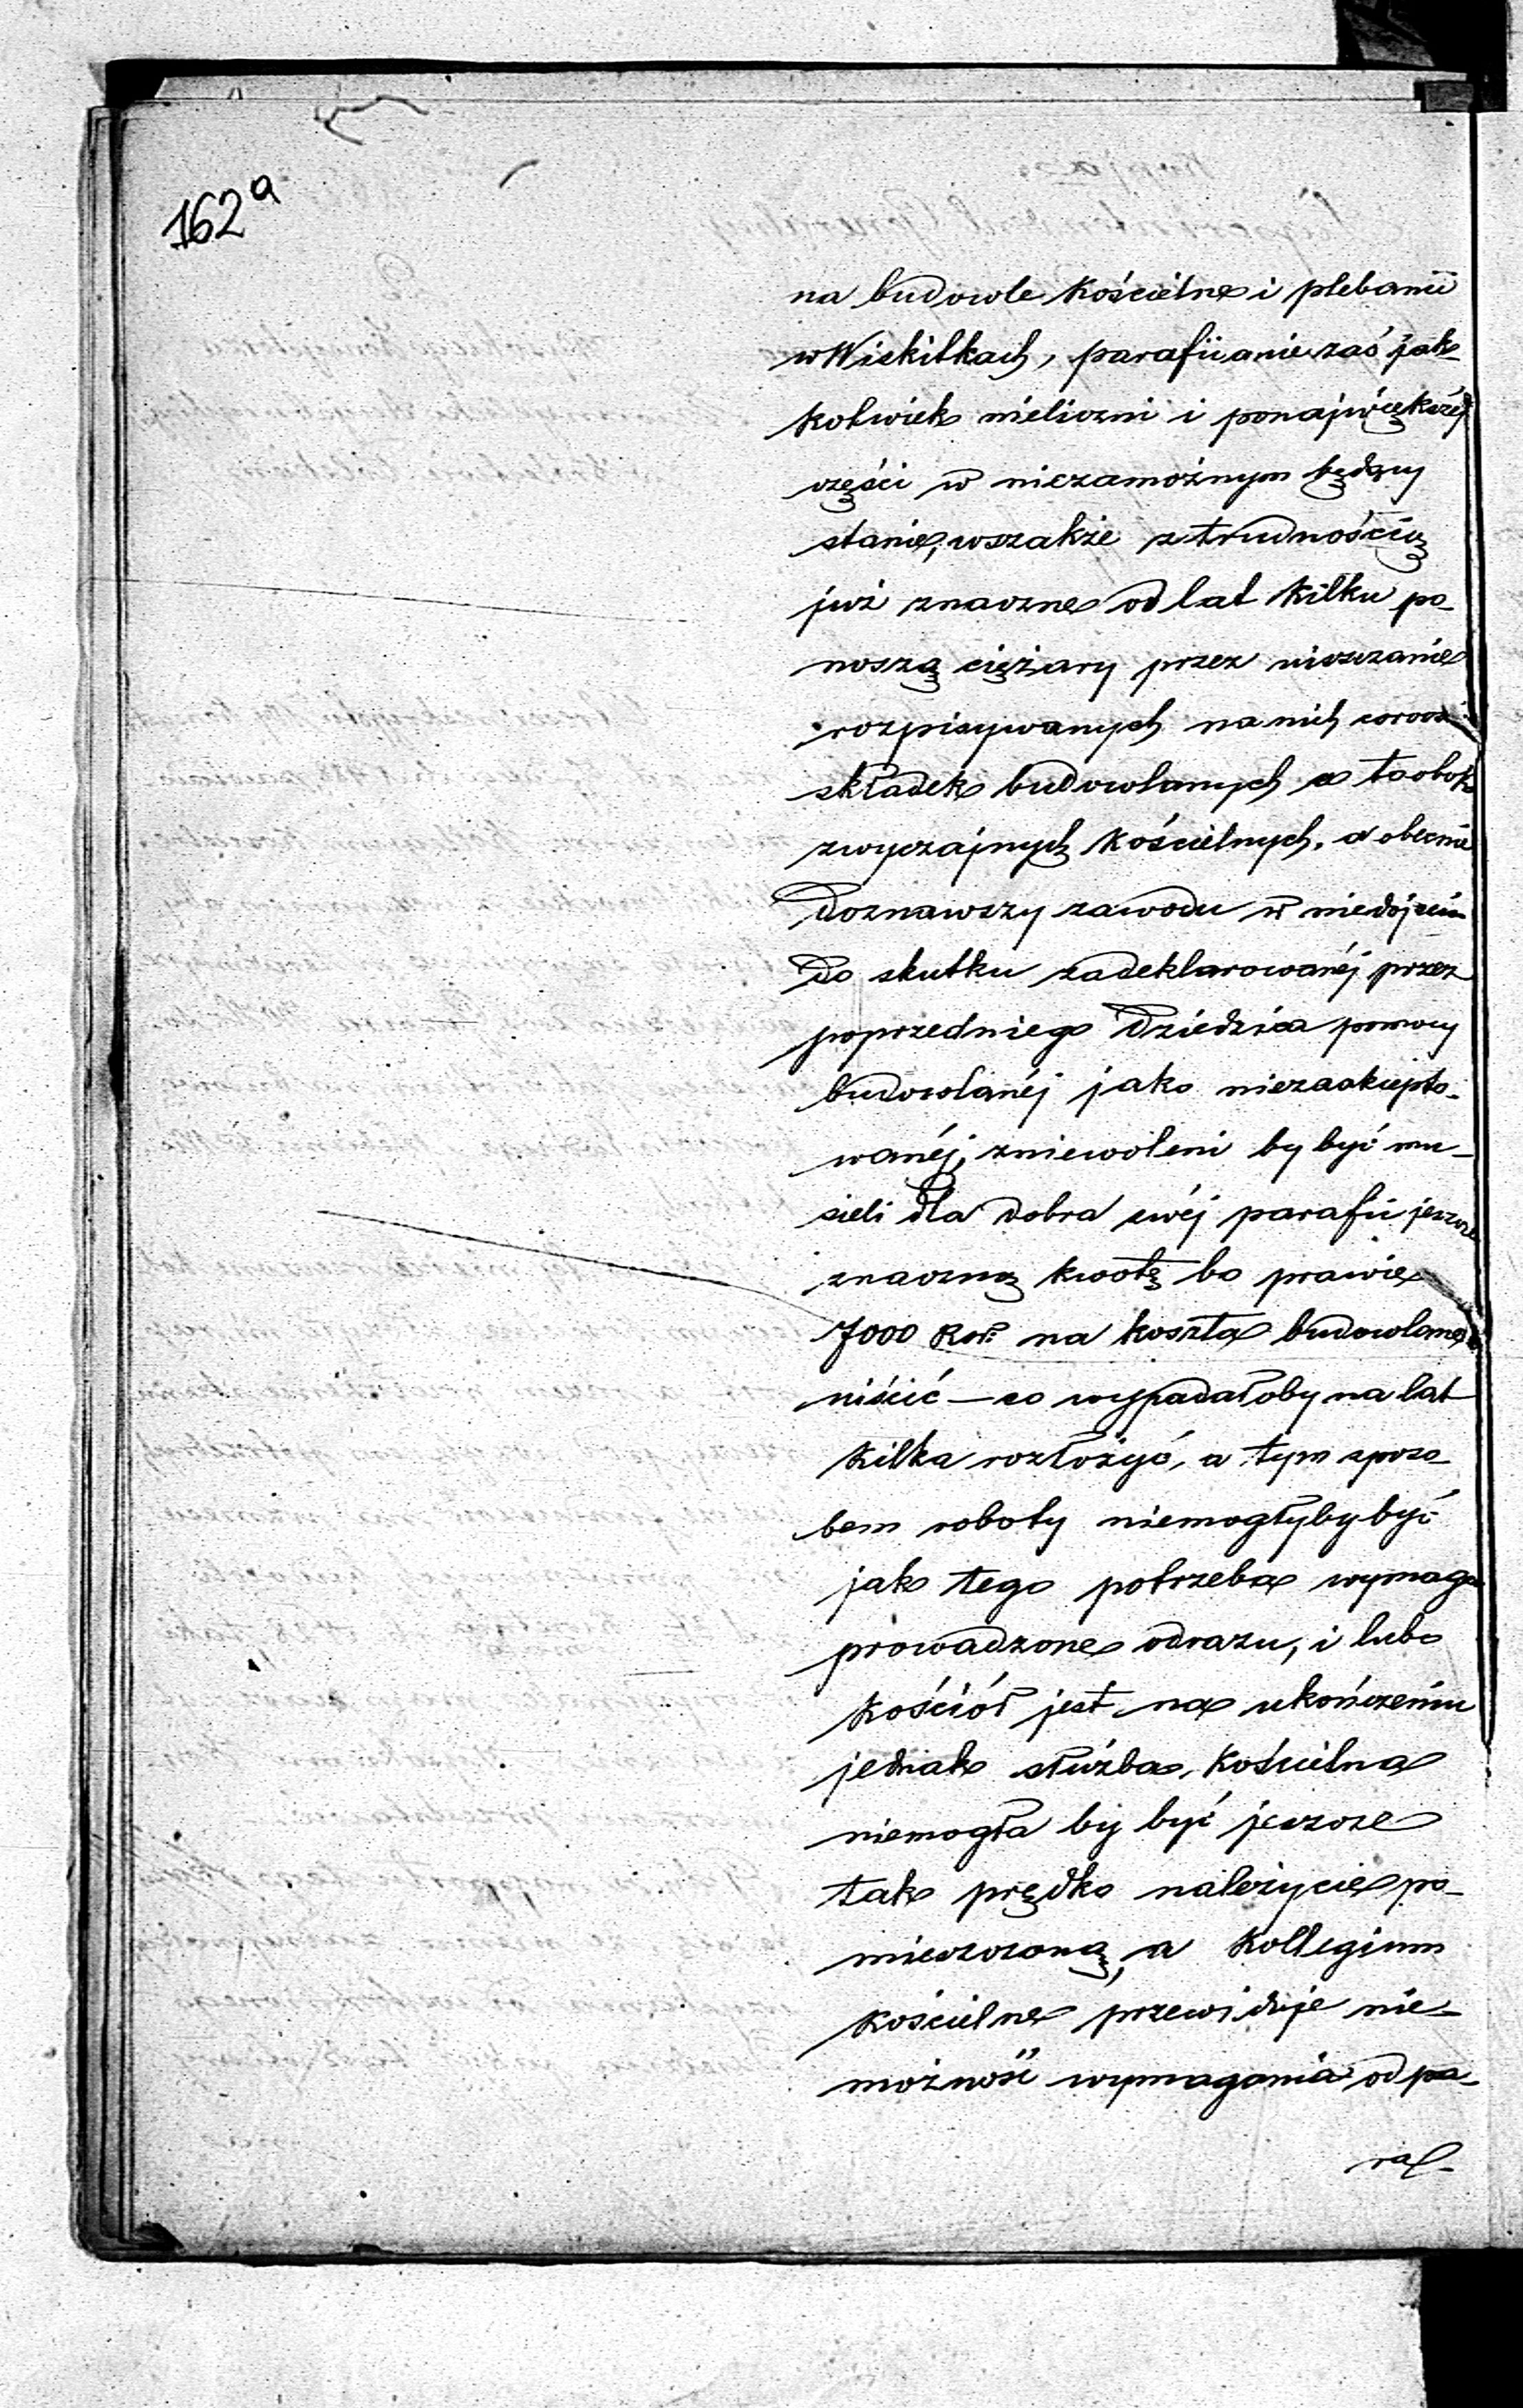 162a
na budowle kościelne i plebanii
w Wiskitkach, parafiianie zaś jak-
kolwiek nieliczni i ponajwiększéj
części w niezamożnym będący
stanie, wszakże z trudnością
już znaczne od lat kilku po-
noszą ciężary przez niszczanie
rozpisywanych na nich corocz
składek budowlanych a to obok
zwyczajnych kościelnych, a obecnie
doznawszy zawodu w niedojściu
do skutku zadeklarowanéj przez
poprzedniego Dziedzica pomocy
budowlanéj jako niezaakcepto-
wanéj, zniewoleni by być mu-
sieli dla dobra swéj parafii jeszcze
znaczną kwotę bo prawie
7000 Rsr: na koszta budowlane
niścić — co wypadałoby na lat
kilka rozłożyć, a tym sposo-
bem roboty niemogłyby być
jak tego potrzeba wymaga
prowadzone odrazu, i lubo
kościół jest na ukończeniu
jednak służba kościelna
niemogła by być jeszcze
tak prędko należycie po-
mieszczoną, a Kollegium
kościelne przewiduje nie-
możność wymagania od pa-
raf-